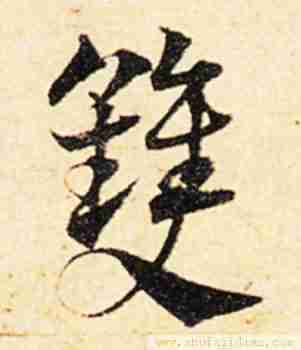 雙
www.shufazidian.com